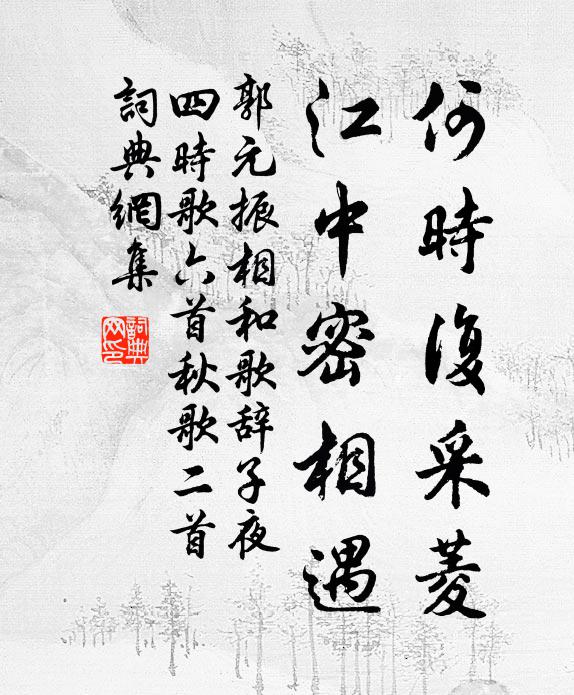 何時復采菱
江中密相遇
郭元振相和歌辞子夜
四時歌六首秋歌二首
詞典網集
詞典
网印